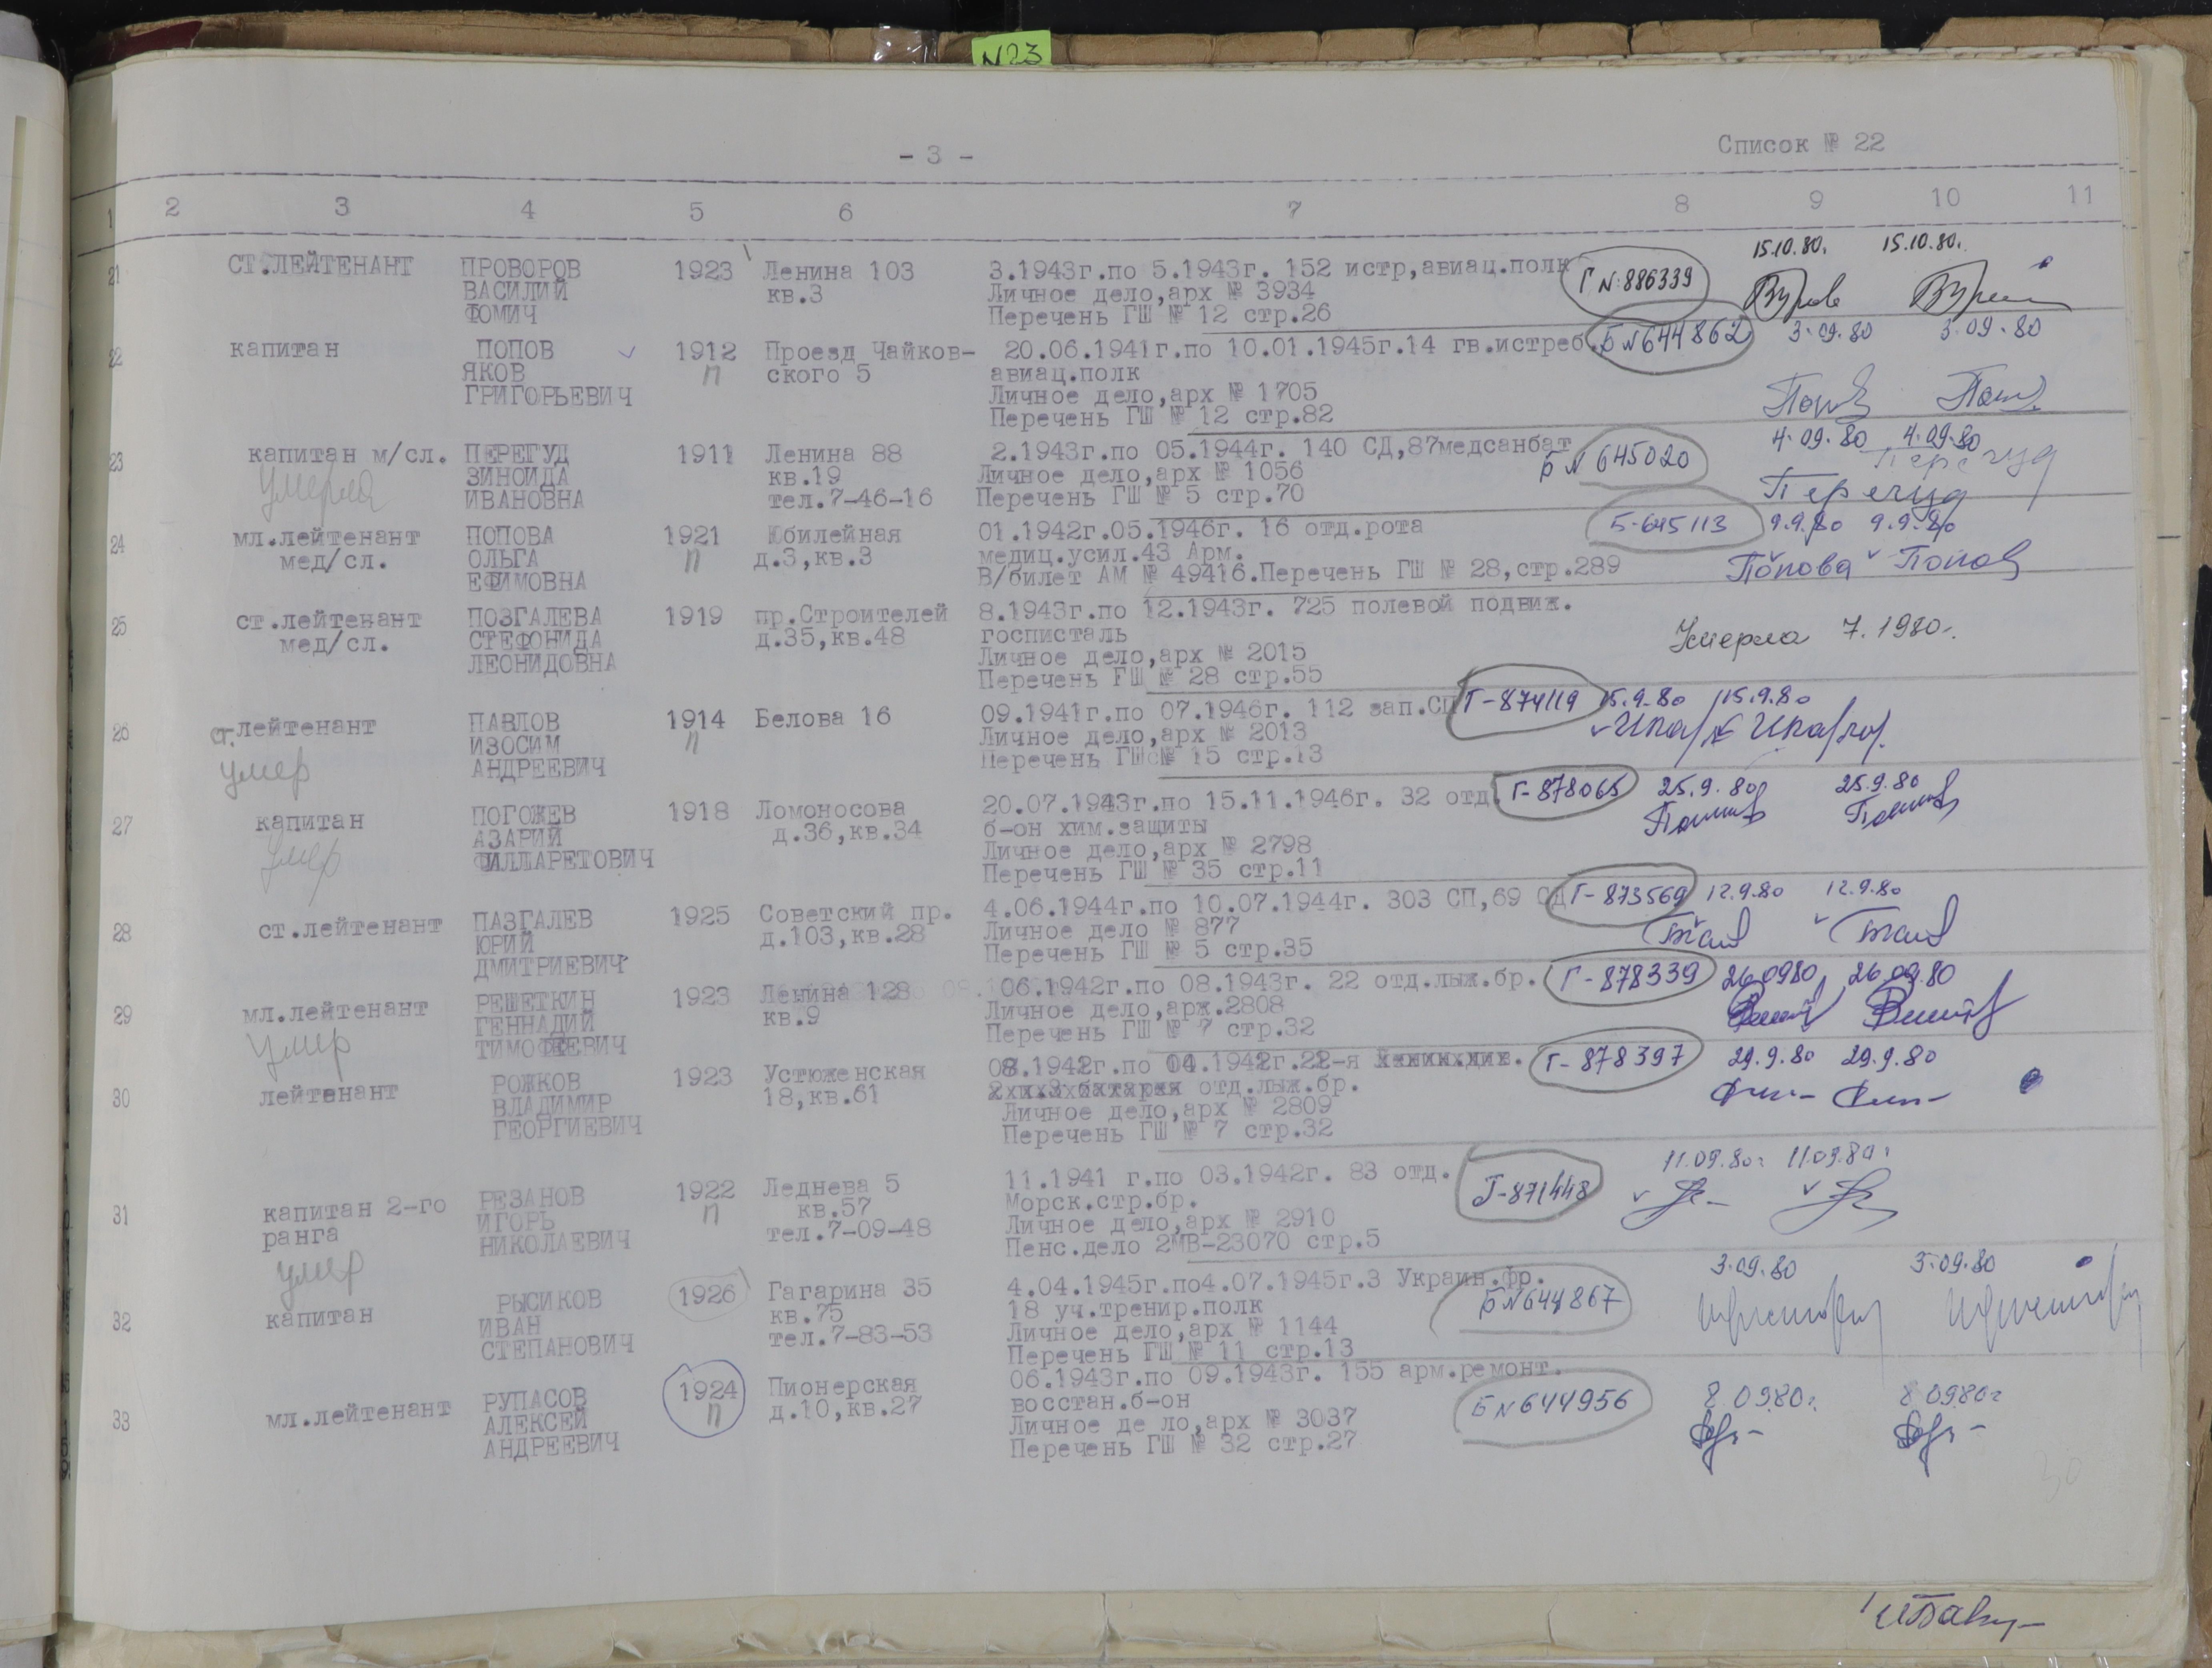 N23
- 3 -
Список № 22
1 2 3 4 5 6 7 8 9 10 11
15.10.80. 15.10.80.
21 СТ.ЛЕЙТЕНАНТ ПРОВОРОВ 1923 Ленина 103 3.1943г.по 5.1943г. 152 истр,авиац.полк Г N:886339
ВАСИЛИЙ кв.3 Личное дело,арх № 3934
ФОМИЧ Перечень ГШ № 12 стр.26
22 капитан ПОПОВ 1912 Проезд Чайков- 20.06.1941г.по 10.01.1945г.14 гв.истреб. Б N 644862 3.09.80 3.09.80
ЯКОВ П ского 5 авиац.полк
ГРИГОРЬЕВИЧ Личное дело,арх № 1705
Перечень ГШ № 12 стр.82
23 капитан м/сл. ПЕРЕГУД 1911 Ленина 88 2.1943г.по 05.1944г. 140 СД,87медсанбат Б N 645020 4.09.80 4.09.80
умерла ЗИНОИДА кв.19 Личное дело,арх № 1056 Перегуд
ИВАНОВНА тел.7-46-16 Перечень ГШ № 5 стр.70 Перегуд
24 мл.лейтенант ПОПОВА 1921 Юбилейная 01.1942г.05.1946г. 16 отд.рота Б-645113 9.9.80 9.9.80
мед/сл. ОЛЬГА П д.3,кв.3 медиц.усил.43 Арм.
ЕФИМОВНА В/билет АМ № 49416.Перечень ГШ № 28,стр.289 Попова Попов
25 ст.лейтенант ПОЗГАЛЕВА 1919 пр.Строителей 8.1943г.по 12.1943г. 725 полевой подвиж.
мед/сл. СТЕФОНИДА д.35,кв.48 госписталь Умерла 7.1980г.
ЛЕОНИДОВНА Личное дело,арх № 2015
Перечень ГШ № 28 стр.55
26 ст.лейтенант ПАВЛОВ 1914 Белова 16 09.1941г.по 07.1946г. 112 зап.СП Г-874119 15.9.80 15.9.80
умер ИЗОСИМ П Личное дело,арх № 2013
АНДРЕЕВИЧ Перечень ГШс№ 15 стр.13
27 капитан ПОГОЖЕВ 1918 Ломоносова 20.07.1943г.по 15.11.1946г. 32 отд. Г-878065 25.9.80 25.9.80
умер АЗАРИЙ д.36,кв.34 б-он хим.защиты
ФИЛЛАРЕТОВИЧ Личное дело,арх № 2798
Перечень ГШ № 35 стр.11
28 ст.лейтенант ПАЗГАЛЕВ 1925 Советский пр. 4.06.1944г.по 10.07.1944г. 303 СП,69 СД Г-873569 12.9.80 12.9.80
ЮРИЙ д.103,кв.28 Личное дело № 877
ДМИТРИЕВИЧ Перечень ГШ № 5 стр.35
29 мл.лейтенант РЕШЕТКИН 1923 Ленина 128 06.1942г.по 08.1943г. 22 отд.лыж.бр. Г-878339 26.0980 26.09.80
умер ГЕННАДИЙ кв.9 Личное дело,арж.2808
ТИМОФЕЕВИЧ Перечень ГШ № 7 стр.32
30 лейтенант РОЖКОВ 1923 Устюженская 08.1942г.по 04.1942г.22-я Г-878397 29.9.80 29.9.80
ВЛАДИМИР 18,кв.61 отд.лыж.бр.
ГЕОРГИЕВИЧ Личное дело,арх № 2809
Перечень ГШ № 7 стр.32
31 капитан 2-го РЕЗАНОВ 1922 Леднева 5 11.1941 г.по 03.1942г. 83 отд. Г-871448 11.09.80г 11.09.80г
ранга ИГОРЬ П кв.57 Морск.стр.бр.
умер НИКОЛАЕВИЧ тел.7-09-48 Личное дело,арх № 2910
Пенс.дело 2МВ-23070 стр.5
32 капитан РЫСИКОВ 1926 Гагарина 35 4.04.1945г.по4.07.1945г.3 Украин.фр. Б N 644867 3.09.80 3.09.80
ИВАН кв.75 18 уч.тренир.полк
СТЕПАНОВИЧ тел.7-83-53 Личное дело,арх № 1144
Перечень ГШ № 11 стр.13
33 мл.лейтенант РУПАСОВ 1924 Пионерская 06.1943г.по 09.1943г. 155 арм.ремонт. Б N 644956 8.09.80г. 8.09.80г
АЛЕКСЕЙ П д.10,кв.27 восстан.б-он
АНДРЕЕВИЧ Личное де ло,арх № 3037
Перечень ГШ № 32 стр.27
30